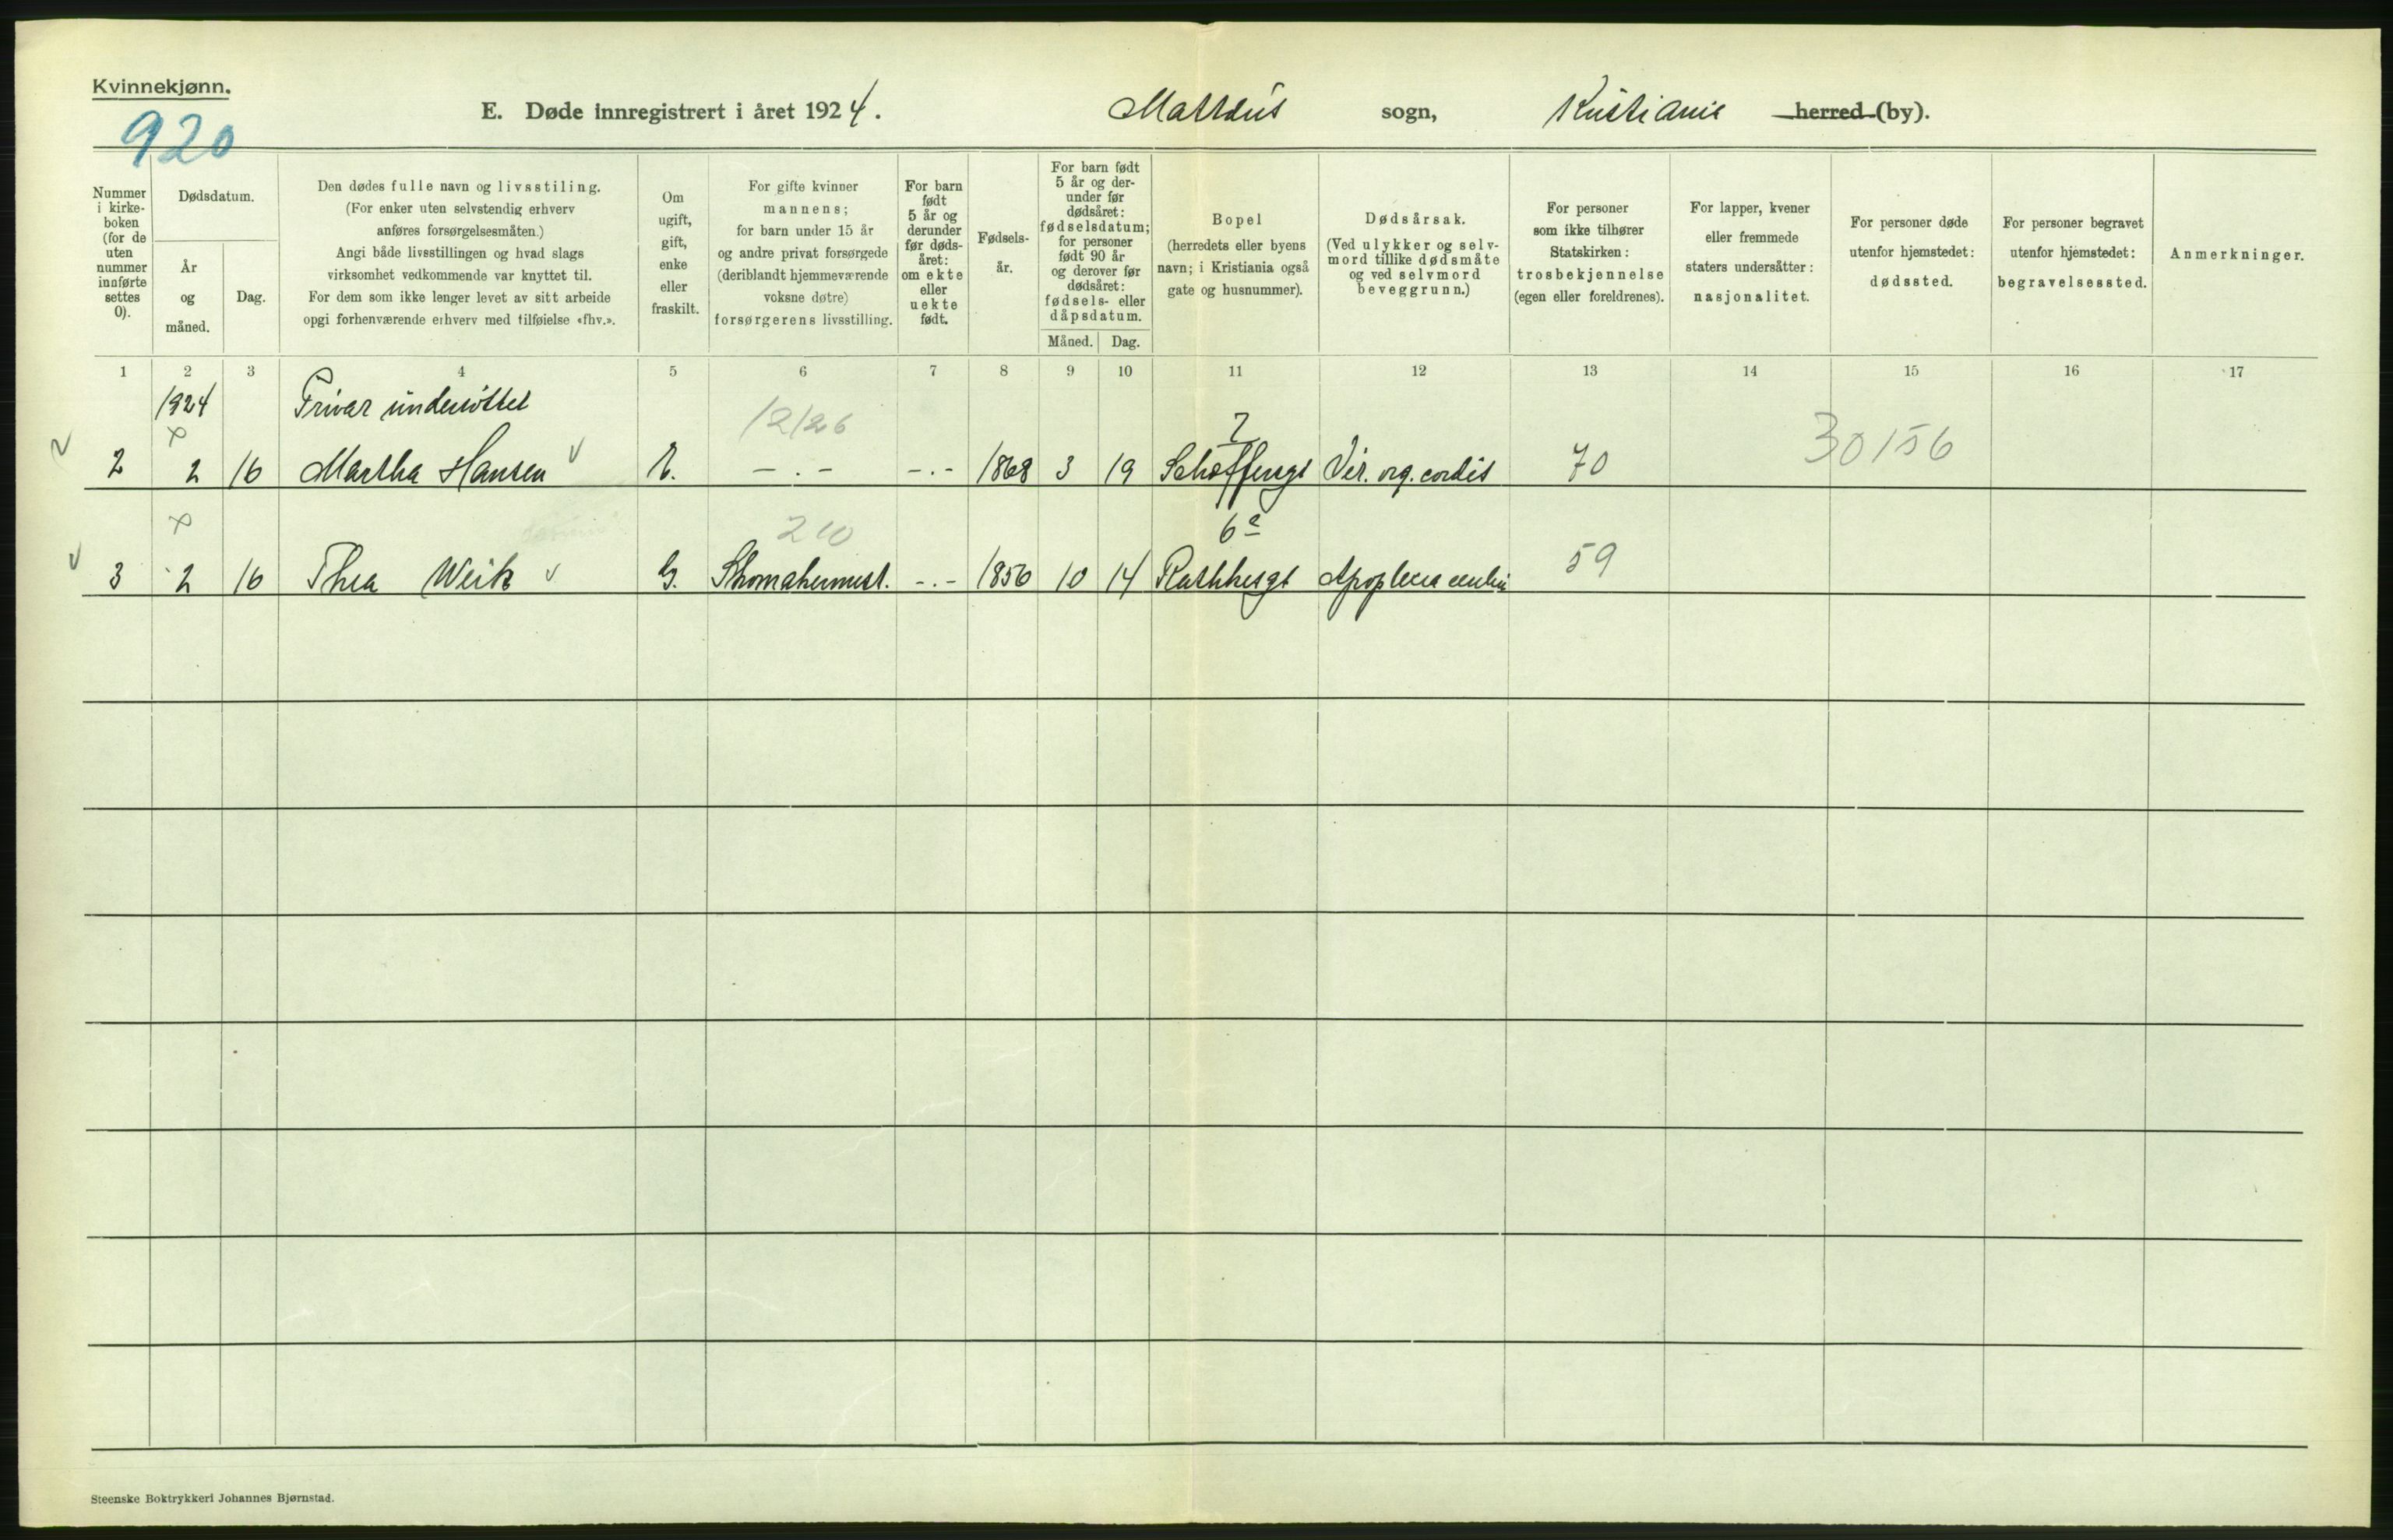 Kvinnekjønn.
920
E. Døde innregistrert i året 1924. Matteus sogn, Kristiania herred (by).
Nummer i kirkeboken (for de uten nummer innførte settes 0).
Dødsdatum.
År og måned.
Dag.
Den dødes fulle navn og livsstiling.
(For enker uten selvstendig erhverv
anføres forsørgelsesmåten.)
Angi både livsstillingen og hvad slags
virksomhet vedkommende var knyttet til.
For dem som ikke lenger levet av sitt arbeide
opgi forhenværende erhverv med tilføielse «fhv.».
Om ugift, gift, enke eller fraskilt.
For gifte kvinner
mannens;
for barn under 15 år
og andre privat forsørgede
(deriblandt hjemmeværende
voksne døtre)
forsørgerens livsstilling.
For barn født 5 år og derunder før dødsåret: om ekte eller uekte født.
Fødselsår.
For barn født 5 år og derunder før dødsåret: fødselsdatum; for personer født 90 år og derover før dødsåret: fødsels- eller dåpsdatum.
Måned. Dag.
Bopel
(herredets eller byens
navn; i Kristiania også
gate og husnummer).
Dødsårsak.
(Ved ulykker og selvmord tillike dødsmåte
og ved selvmord
beveggrunn.)
For personer
som ikke tilhører
Statskirken:
trosbekjennelse
(egen eller foreldrenes).
For lapper, kvener
eller fremmede
staters undersåtter:
nasjonalitet.
For personer døde
utenfor hjemstedet:
dødssted.
For personer begravet
utenfor hjemstedet:
begravelsessted.
Anmerkninger.
1 2 3 4 5 6 7 8 9 10 11 12 13 14 15 16 17
1924 Privat understöttet
12/26 7 30156
2 2 16 Martha Hansen E. -.- -.- 1868 3 19 Vit. org. cordis 70
210 6
3 2 16 Thea Weik G. Skomakermest. -.- 1856 10 14 Rathkesgt Apoplexia 59
Steenske Boktrykkeri Johannes Bjørnstad.